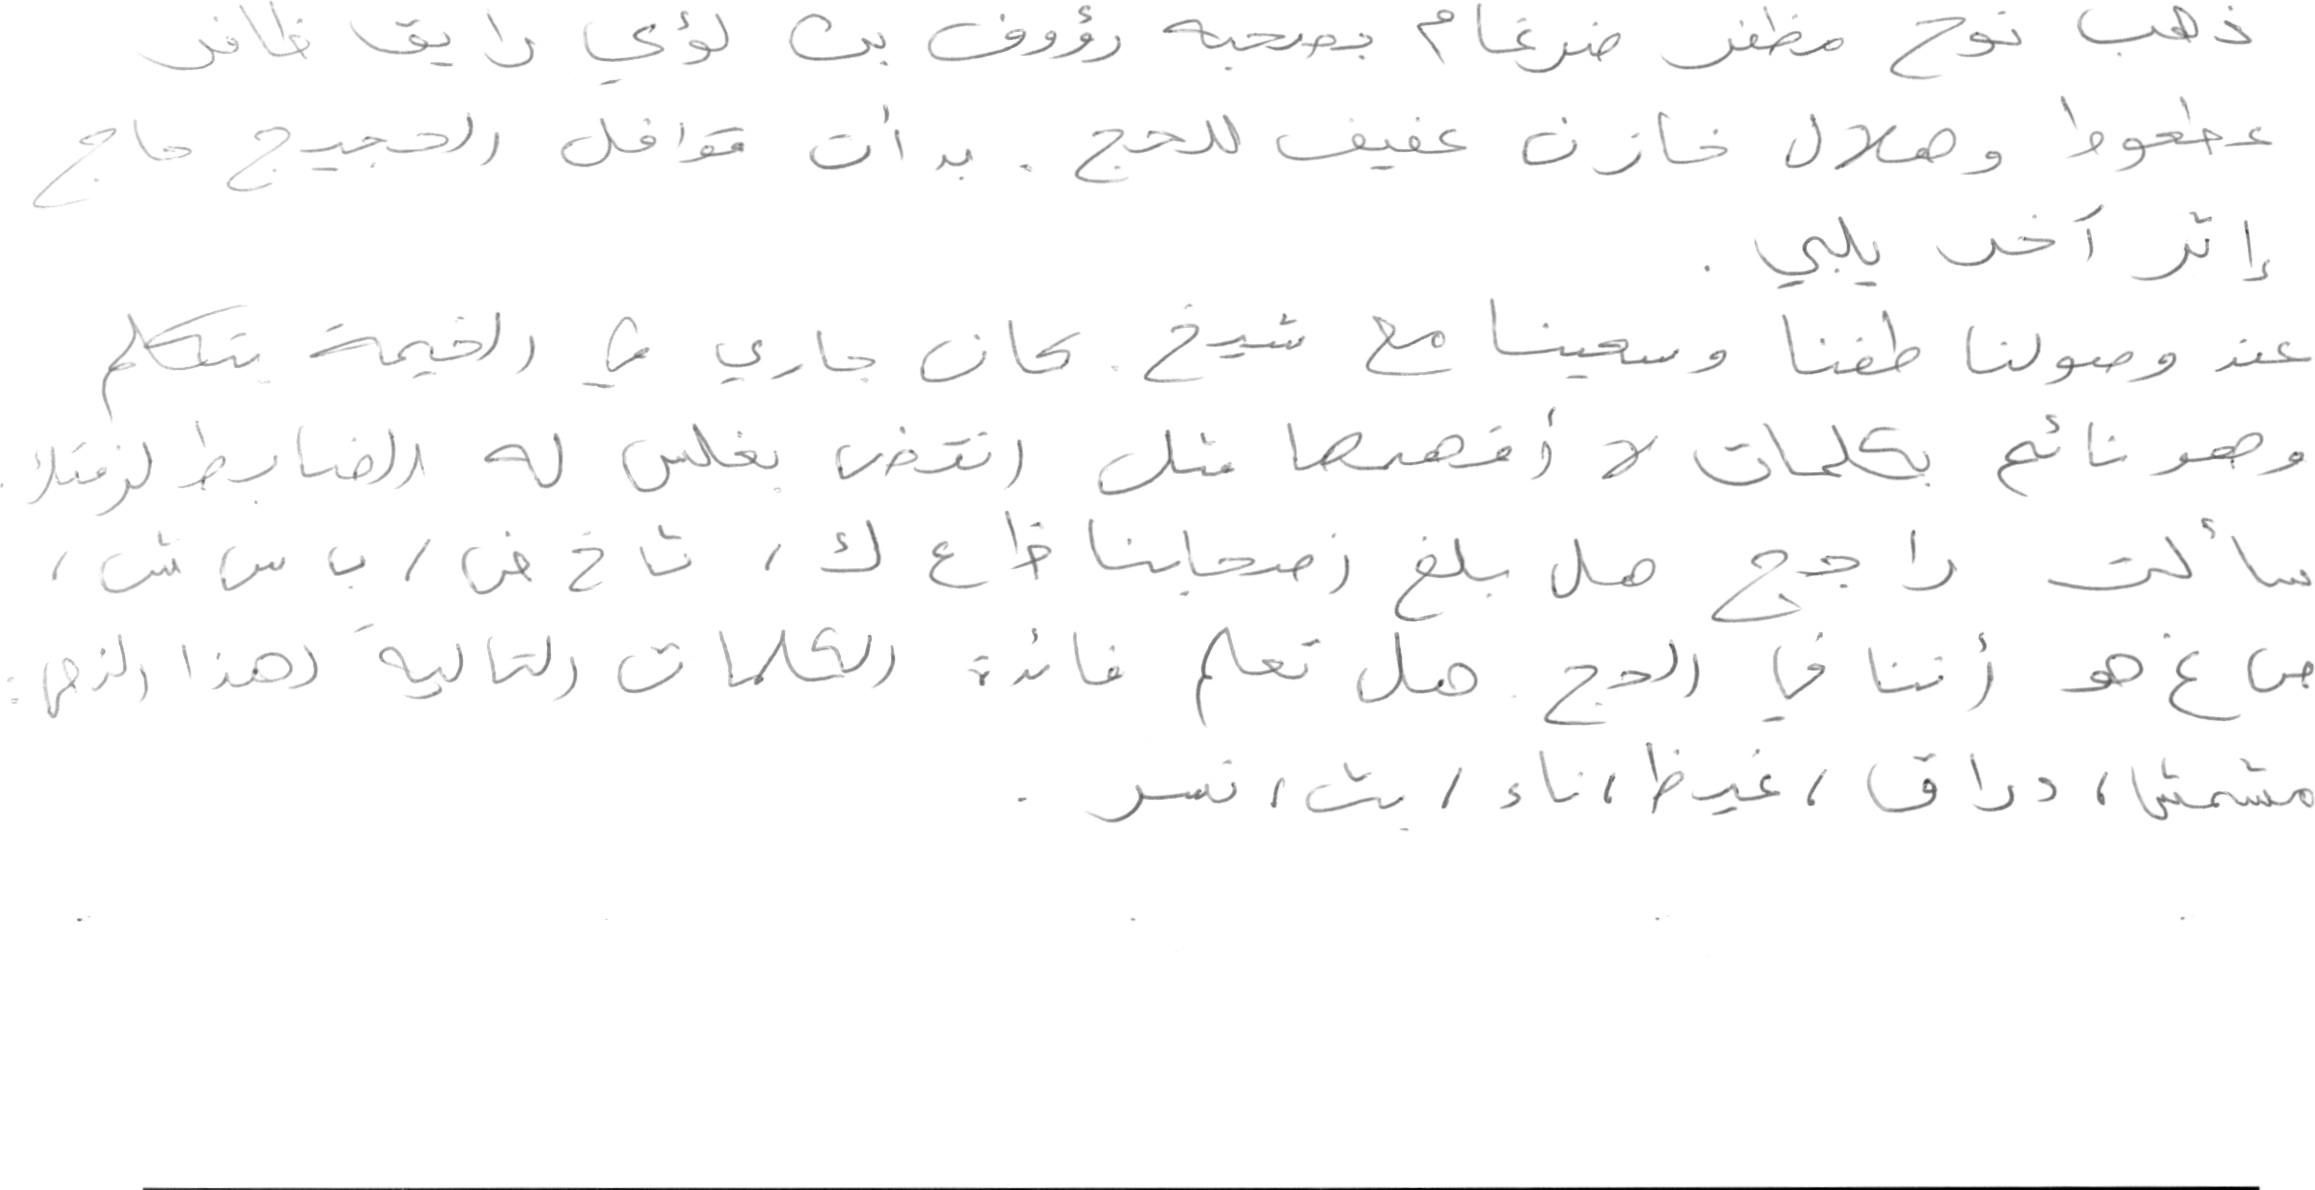 ذهب نوح مظفر ضرغام بصحبه رؤوف بن لؤي رايق ظافر
عطعوط وهلال خازن عفيف للحج . بدأت قوافل الحجيج حاج
إثر آخر يلبي .
عند وصولنا طفنا وسعينا مع شيخ . كان جاري في الخيمة يتكلم
وهو نائم بكلمات لا أفهمها مثل انتخض بغلس له الضابط
سألت راجح هل بلغ أصحابنا ظ ع ك ، ث أ خ ض ، ب س ش ،
ص غ هو أننا في الحج . هل تعلم فائدة الكلمات التالية لهذا النص :
مشمش ، دراق ، غيظ ، ناء ، بث ، نسر .